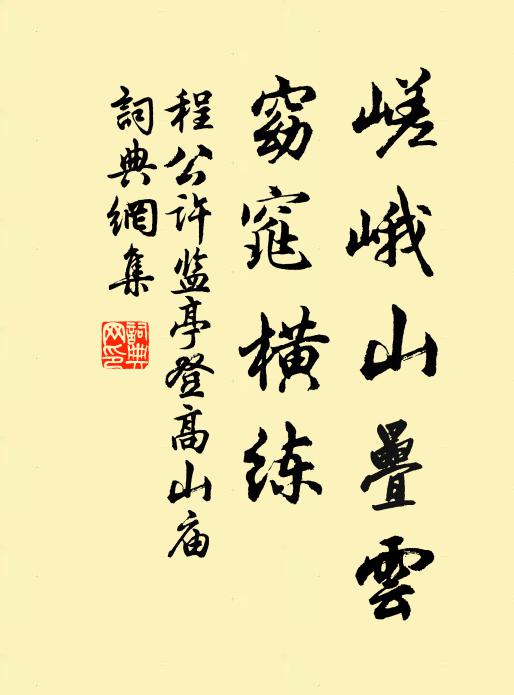 嵯峨山疊雲
窈窕橫练
程公许监亭登高山庙
詞典網集
詞典网印